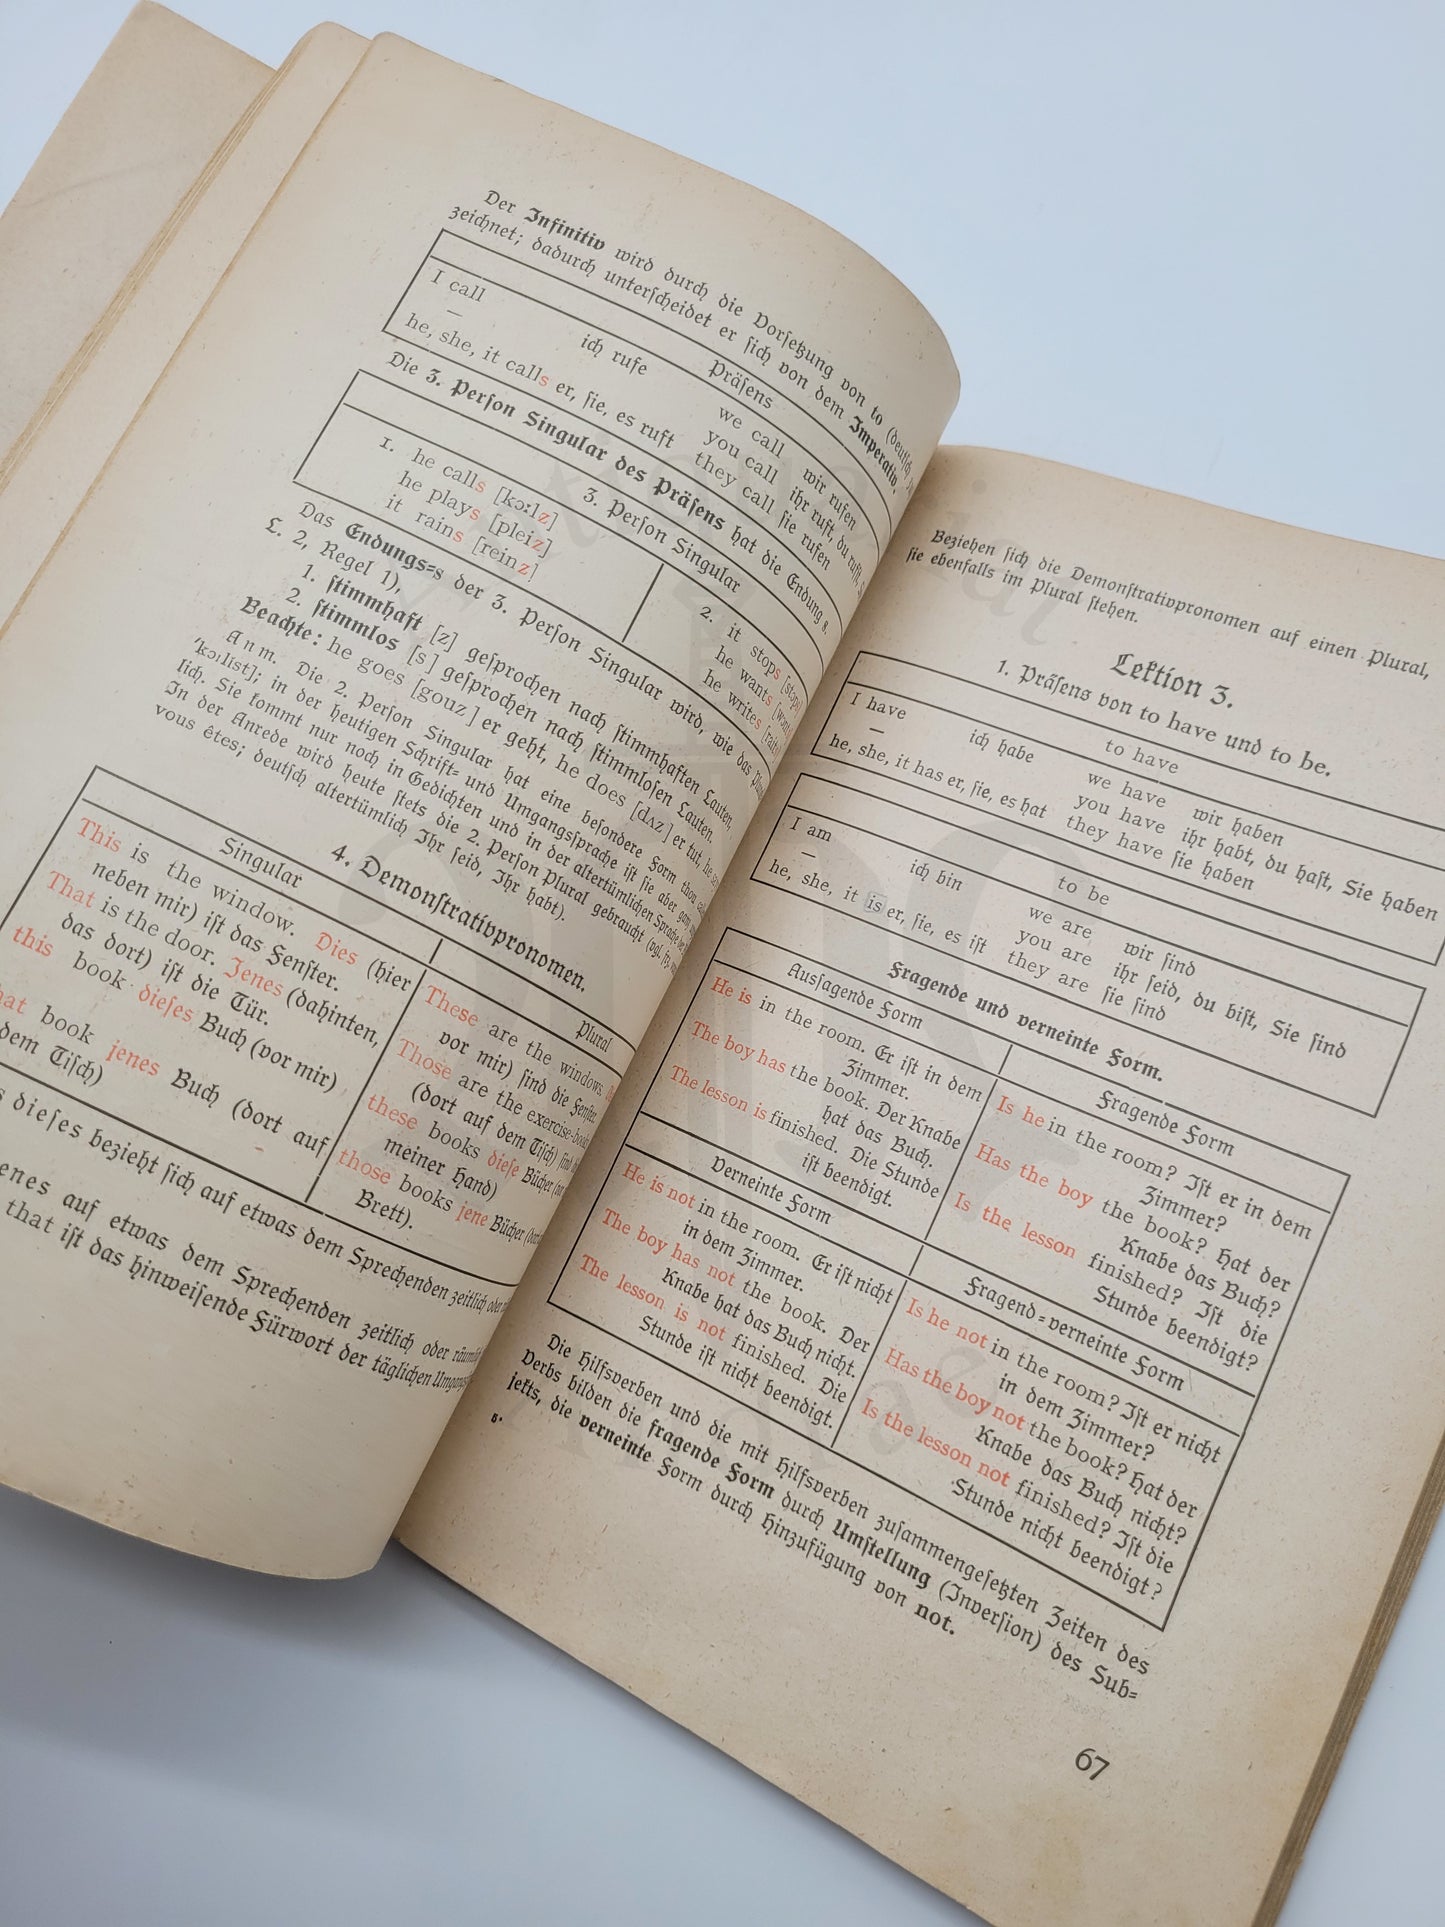 Der Infinitiv wird durch die Vorsetzung von to (deutsch
zeichnet; dadurch unterscheidet er sich von dem Imperativ.
Präsens
I call ich rufe we call wir rufen
— you call ihr ruft, du rufst,
he, she, it calls er, sie, es ruft they call sie rufen
Die 3. Person Singular des Präsens hat die Endung s.
3. Person Singular
1. he calls [kɔ:lz] 2. it stops [stops]
he plays [pleiz] he wants
it rains [reinz] he writes
Das Endungs-s der 3. Person Singular wird, wie das
L. 2, Regel 1),
1. stimmhaft [z] gesprochen nach stimmhaften Lauten,
2. stimmlos [s] gesprochen nach stimmlosen Lauten.
Beachte: he goes [gouz] er geht, he does [dʌz] er tut, he
Anm. Die 2. Person Singular hat eine besondere Form thou
'kɔ:list]; in der heutigen Schrift- und Umgangssprache ist sie aber
lich. Sie kommt nur noch in Gedichten und in der altertümlichen Sprache der
In der Anrede wird heute stets die 2. Person Plural gebraucht (vgl.
vous êtes; deutsch altertümlich Ihr seid, Ihr habt).
4. Demonstrativpronomen.
Singular
This is the window. Dies (hier
neben mir) ist das Fenster.
That is the door. Jenes (dahinten,
das dort) ist die Tür.
this book dieses Buch (vor mir)
book jenes Buch (dort auf
dem Tisch)
Plural
These are the windows.
vor mir) sind die Fenster.
Those are the exercise-books
(dort auf dem Tisch) sind
these books diese Bücher
meiner Hand)
those books jene Bücher
Brett).
dieses bezieht sich auf etwas dem Sprechenden zeitlich oder
auf etwas dem Sprechenden zeitlich oder
that ist das hinweisende Fürwort der täglichen
Beziehen sich die Demonstrativpronomen auf einen Plural,
sie ebenfalls im Plural stehen.
Lektion 3.
1. Präsens von to have und to be.
to have
I have ich habe we have wir haben
— you have ihr habt, du hast, Sie haben
he, she, it has er, sie, es hat they have sie haben
to be
I am ich bin we are wir sind
— you are ihr seid, du bist, Sie sind
he, she, it is er, sie, es ist they are sie sind
Fragende und verneinte Form.
Aussagende Form
He is in the room. Er ist in dem
Zimmer.
The boy has the book. Der Knabe
hat das Buch.
The lesson is finished. Die Stunde
ist beendigt.
Fragende Form
Is he in the room? Ist er in dem
Zimmer?
Has the boy the book? Hat der
Knabe das Buch?
Is the lesson finished? Ist die
Stunde beendigt?
Verneinte Form
He is not in the room. Er ist nicht
in dem Zimmer.
The boy has not the book. Der
Knabe hat das Buch nicht.
The lesson is not finished. Die
Stunde ist nicht beendigt.
Fragend-verneinte Form
Is he not in the room? Ist er nicht
in dem Zimmer?
Has the boy not the book? Hat der
Knabe das Buch nicht?
Is the lesson not finished? Ist die
Stunde nicht beendigt?
Die Hilfsverben und die mit Hilfsverben zusammengesetzten Zeiten des
Verbs bilden die fragende Form durch Umstellung (Inversion) des Sub-
jekts, die verneinte Form durch Hinzufügung von not.
67